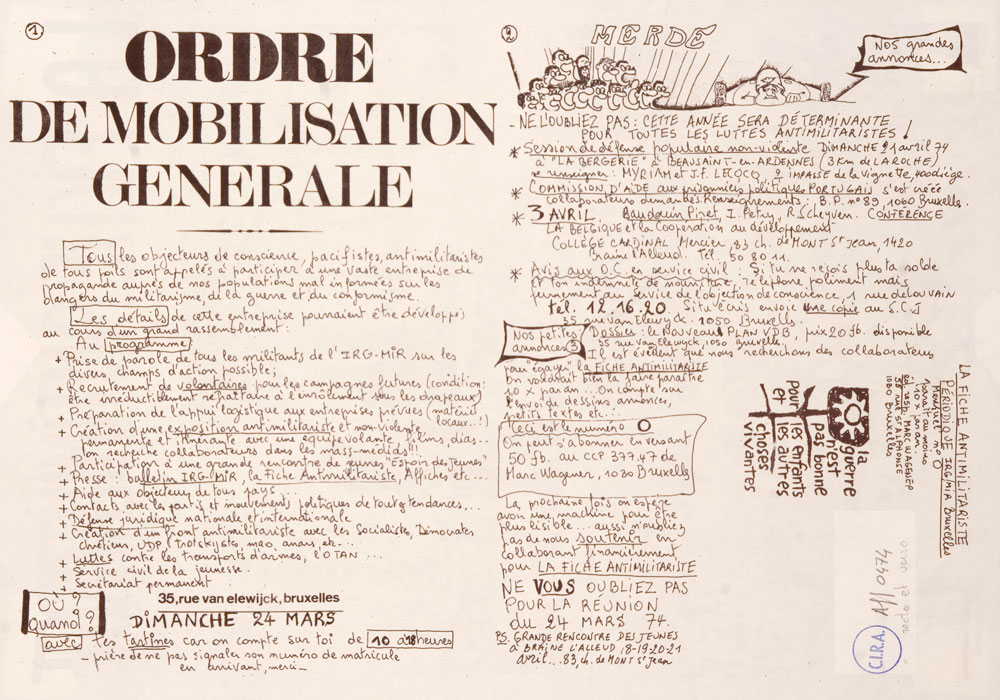 1
ORDRE
DE MOBILISATION
GENERALE
Tous les objecteurs de conscience, pacifistes, antimilitaristes
de tous poils sont appelés à participer à une vaste entreprise de
propagande auprès de nos populations mal informées sur les
dangers du militarisme, de la guerre et du conformisme.
Les détails de cette entreprise pourraient être développés
au cours d'un grand rassemblement :
Au programme
+ Prise de parole de tous les militants de l'IRG-MIR sur les
divers champs d'action possible;
+ Recrutement de volontaires pour les campagnes futures (condition:
être irréductiblement réfractaire à l'enrôlement sous les drapeaux)
+ Préparation de l'appui logistique aux entreprises prévues (matériel,
locaux...!)
+ Création d'une exposition antimilitariste et non-violente,
permanente et itinérante avec une équipe volante, films, dias...
(on recherche collaborateurs dans les mass-médias!!).
+ Participation à une grande rencontre de jeunes "Espoir des Jeunes"
+ Presse : bulletin IRG-MIR, la Fiche Antimilitariste, Affiches etc...
+ Aide aux objecteurs de tous pays
+ Contacts avec les partis et mouvements politiques de toutes tendances...
+ Défense juridique nationale et internationale
+ Création d'un front antimilitariste avec les Socialistes, Démocrates
chrétiens, UDP, Trotskystes, mao, anars, etc.
+ Luttes contre les transports d'armes, l'OTAN...
+ Service civil de la jeunesse.
+ Secrétariat permanent
OÙ?
Quand?
35, rue van elewijck, bruxelles
DIMANCHE 24 MARS
avec tes tartines car on compte sur toi de 10 à 18 heures
- prière de ne pas signaler son numéro de matricule
en arrivant, merci -
2
MERDE
NOS grandes
annonces...
- NE L'OUBLIEZ PAS : CETTE ANNÉE SERA DÉTERMINANTE
POUR TOUTES LES LUTTES ANTIMILITARISTES!
* Session de défense populaire non-violente DIMANCHE 21 avril 74
à "LA BERGERIE" à BEAUSAINT-en-ARDENNES (3 Km de LA ROCHE)
se renseigner : MYRIAM et J.F. LECOCQ, 2 impasse de la Vignette,
* COMMISSION D'AIDE aux prisonniers politiques PORTUGAIS s'est créée
collaborateurs demandés. Renseignements : B.P. n° 89, 1060 Bruxelles.
* 3 AVRIL. Baudouin Piret, I. Petry, R. Scheyven. CONFÉRENCE
LA BELGIQUE et la Coopération au développement
COLLÈGE CARDINAL Mercier, 83 ch. de MONT St Jean, 1420
Braine l'Alleud. Tél. 50 80 11.
* Avis aux O.C. en service civil : Si tu ne reçois plus ta solde
et ton indemnité de nourriture, téléphone poliment mais
fermement au service de l'objection de conscience, 1 rue de Louvain
tél. 12.16.20. Si tu écris envoie une copie au S.C.J
35 rue van Elewyck. 1050 Bruxelles.
NOS petites
annonces 3
Dossiers : le nouveau PLAN VDB, prix 20 fb. disponible
35 rue van Elewijck, 1050 Bruxelles.
Il est évident que nous recherchons des collaborateurs
pour égayer la FICHE ANTIMILITARISTE
On voudrait bien la faire paraître
10 x par an... On compte sur
toi de dessins, annonces,
petits textes etc...
Ceci est le numéro 0
On peut s'abonner en versant
50 fb. au CCP 377.47 de
Marc Wagener, 1030 Bruxelles
La prochaine fois on espère
avoir une machine pour être
plus lisible... aussi n'oubliez
pas de nous soutenir en
collaborant financièrement
pour LA FICHE ANTIMILITARISTE
NE VOUS OUBLIEZ PAS
POUR LA RÉUNION
du 24 MARS 74.
PS. GRANDE RENCONTRE DES JEUNES
à BRAINE L'ALLEUD 18-19-20-21
avril... 83, ch. de MONT St Jean
la
guerre
n'est
pas bonne
pour les enfants
et les autres
choses
vivantes
LA FICHE ANTIMILITARISTE
PÉRIODIQUE IRG/MIR Bruxelles
Mensuel n° 0
paraît au moins
10 x par an.
éd. resp. MARC WAGENER
rue St ALPHONSE
1030 BRUXELLES
C.I.R.A.
Aff 0474
recto et verso